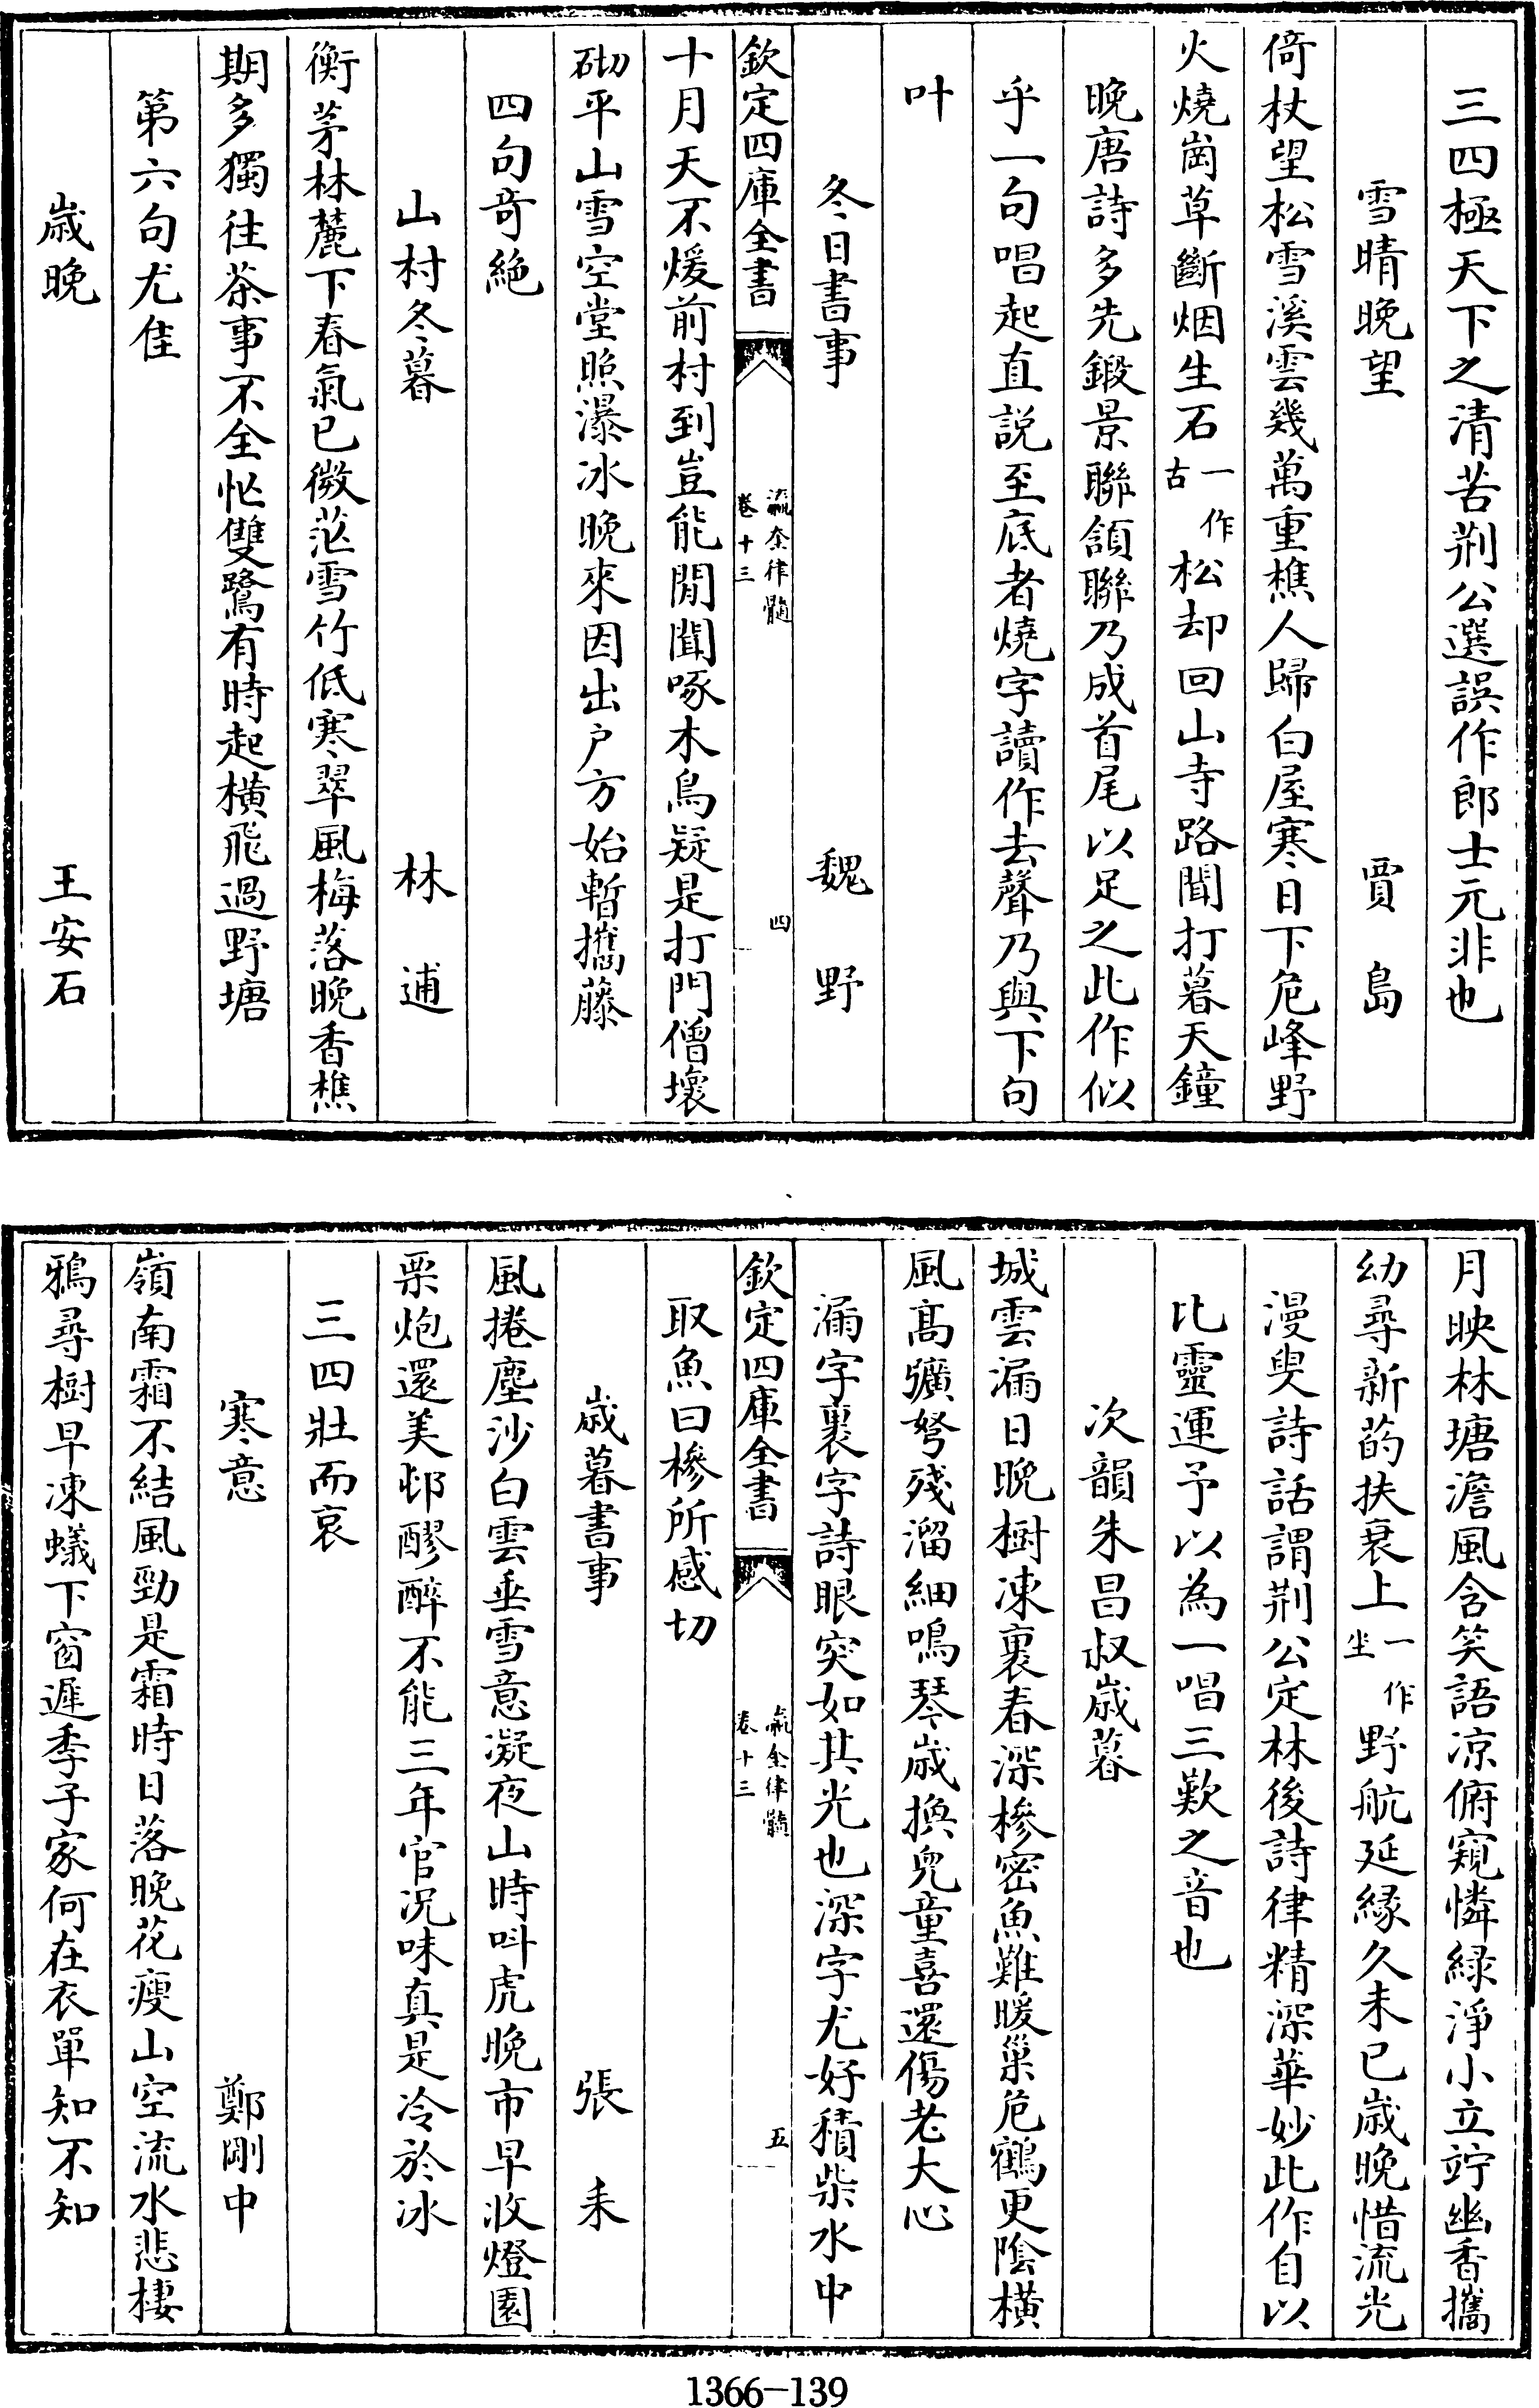 三四極天下之清苦荆公選誤作郎士元非也
雪晴晚望 賈島
倚杖望松雪溪雲幾萬重樵人歸白屋寒日下危峰野
火燒崗草斷烟生石一作古松却回山寺路聞打暮天鐘
晚唐詩多先鍛景聯頷聯乃成首尾以足之此作似
乎一句唱起直説至底者燒字讀作去聲乃與下句
叶
冬日書事 魏野
欽定四庫全書 瀛奎律髓 卷十三 四
十月天不煖前村到豈能閒聞啄木鳥疑是打門僧壞
砌平山雪空堂照瀑冰晚來因出户方始暫攜藤
四句奇絶
山村冬暮 林逋
衡茅林麓下春氣已微茫雪竹低寒翠風梅落晚香樵
期多獨往茶事不全忙雙鷺有時起橫飛過野塘
第六句尤佳
歲晚 王安石
月映林塘澹風含笑語凉俯窺憐緑淨小立竚幽香攜
幼尋新菂扶衰上一作坐野航延縁久未已歲晚惜流光
漫叟詩話謂荆公定林後詩律精深華妙此作自以
比靈運予以為一唱三歎之音也
次韻朱昌叔歲暮
城雲漏日晚樹凍裏春深槮密魚難暖巢危鶴更陰橫
風高彍弩殘溜細鳴琴歲換兒童喜還傷老大心
漏字裏字詩眼突如其光也深字尤好積柴水中
欽定四庫全書 瀛奎律髓 卷十三 五
取魚曰槮所感切
歲暮書事 張耒
風捲塵沙白雲垂雪意凝夜山時叫虎晚市早收燈園
栗炮還美邨醪醉不能三年官况味真是冷於冰
三四壯而哀
寒意 鄭剛中
嶺南霜不結風勁是霜時日落晚花瘦山空流水悲棲
鴉尋樹早凍蟻下窗遲季子家何在衣單知不知
1366-139